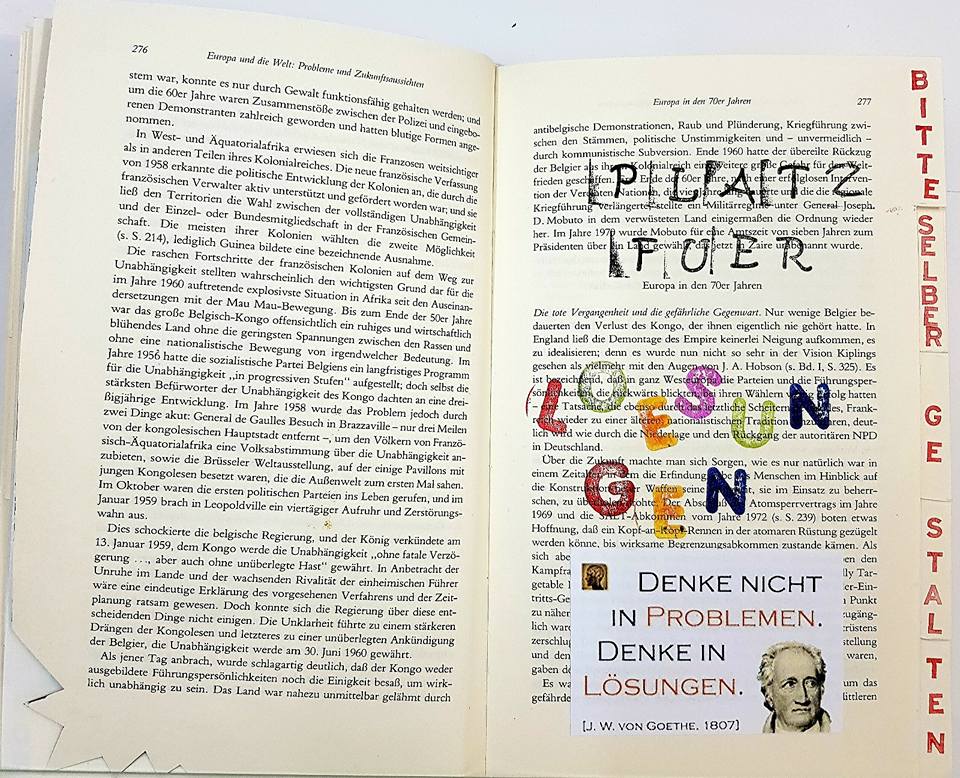 276
Europa und die Welt: Probleme und Zukunftsaussichten
stem war, konnte es nur durch Gewalt funktionsfähig gehalten werden; und
um die 60er Jahre waren Zusammenstöße zwischen der Polizei und eingebo-
renen Demonstranten zahlreich geworden und hatten blutige Formen ange-
nommen.
In West- und Äquatorialafrika erwiesen sich die Franzosen weitsichtiger
als in anderen Teilen ihres Kolonialreiches. Die neue französische Verfassung
von 1958 erkannte die politische Entwicklung der Kolonien an, die durch die
französischen Verwalter aktiv unterstützt und gefördert worden war; und sie
ließ den Territorien die Wahl zwischen der vollständigen Unabhängigkeit
und der Einzel- oder Bundesmitgliedschaft in der Französischen Gemein-
schaft. Die meisten ihrer Kolonien wählten die zweite Möglichkeit
(s. S. 214), lediglich Guinea bildete eine bezeichnende Ausnahme.
Die raschen Fortschritte der französischen Kolonien auf dem Weg zur
Unabhängigkeit stellten wahrscheinlich den wichtigsten Grund dar für die
im Jahre 1960 auftretende explosivste Situation in Afrika seit den Auseinan-
dersetzungen mit der Mau Mau-Bewegung. Bis zum Ende der 50er Jahre
war das große Belgisch-Kongo offensichtlich ein ruhiges und wirtschaftlich
blühendes Land ohne die geringsten Spannungen zwischen den Rassen und
ohne eine nationalistische Bewegung von irgendwelcher Bedeutung. Im
Jahre 1956 hatte die sozialistische Partei Belgiens ein langfristiges Programm
für die Unabhängigkeit „in progressiven Stufen“ aufgestellt; doch selbst die
stärksten Befürworter der Unabhängigkeit des Kongo dachten an eine drei-
ßigjährige Entwicklung. Im Jahre 1958 wurde das Problem jedoch durch
zwei Dinge akut: General de Gaulles Besuch in Brazzaville – nur drei Meilen
von der kongolesischen Hauptstadt entfernt –, um den Völkern von Franzö-
sisch-Äquatorialafrika eine Volksabstimmung über die Unabhängigkeit an-
zubieten, sowie die Brüsseler Weltausstellung, auf der einige Pavillons mit
jungen Kongolesen besetzt waren, die die Außenwelt zum ersten Mal sahen.
Im Oktober waren die ersten politischen Parteien ins Leben gerufen, und im
Januar 1959 brach in Leopoldville ein viertägiger Aufruhr und Zerstörungs-
wahn aus.
Dies schockierte die belgische Regierung, und der König verkündete am
13. Januar 1959, dem Kongo werde die Unabhängigkeit „ohne fatale Verzö-
gerung . . ., aber auch ohne unüberlegte Hast“ gewährt. In Anbetracht der
Unruhe im Lande und der wachsenden Rivalität der einheimischen Führer
wäre eine eindeutige Erklärung des vorgesehenen Verfahrens und der Zeit-
planung ratsam gewesen. Doch konnte sich die Regierung über diese ent-
scheidenden Dinge nicht einigen. Die Unklarheit führte zu einem stärkeren
Drängen der Kongolesen und letzteres zu einer unüberlegten Ankündigung
der Belgier, die Unabhängigkeit werde am 30. Juni 1960 gewährt.
Als jener Tag anbrach, wurde schlagartig deutlich, daß der Kongo weder
ausgebildete Führungspersönlichkeiten noch die Einigkeit besaß, um wirk-
lich unabhängig zu sein. Das Land war nahezu unmittelbar gelähmt durch
Europa in den 70er Jahren
277
antibelgische Demonstrationen, Raub und Plünderung, Kriegführung zwi-
schen den Stämmen, politische Unstimmigkeiten und – unvermeidlich –
durch kommunistische Subversion. Ende 1960 hatte der übereilte Rückzug
der Belgier aus ihrem Kolonialreich eine weitere große Gefahr für den Welt-
frieden geschaffen. Ende der 60er Jahre, nach einer erfolglosen Interven-
tion der Vereinten Nationen, die die regionale
Kriegführung verlängerte, stellte ein Militärregime unter General Joseph.
D. Mobuto in dem verwüsteten Land einigermaßen die Ordnung wieder
her. Im Jahre 1970 wurde Mobuto für eine Amtszeit von sieben Jahren zum
Präsidenten über ein Land gewählt, das jetzt in Zaire umbenannt wurde.
PLATZ
FUER
Europa in den 70er Jahren
Die tote Vergangenheit und die gefährliche Gegenwart. Nur wenige Belgier be-
dauerten den Verlust des Kongo, der ihnen eigentlich nie gehört hatte. In
England ließ die Demontage des Empire keinerlei Neigung aufkommen, es
zu idealisieren; denn es wurde nun nicht so sehr in der Vision Kiplings
gesehen als vielmehr mit den Augen von J. A. Hobson (s. Bd. I, S. 325). Es
ist bezeichnend, daß in ganz Westeuropa die Parteien und die Führungsper-
sönlichkeiten, die rückwärts blickten, bei ihren Wählern wenig Erfolg hatten
Tatsache, die Frank-
reich wieder zu einer älteren nationalistischen Tradition deut-
lich wird wie durch die Niederlage und den Rückgang der autoritären NPD
in Deutschland.
LOESUN
GEN
Über die Zukunft machte man sich Sorgen, wie es nur natürlich war in
einem Zeitalter, in dem die Erfindungsgabe des Menschen im Hinblick auf
die Konstruktion von Waffen seine sie im Einsatz zu beherr-
schen, zu übersteigen drohte. Der Abschluß des Atomsperrvertrags im Jahre
1969 und die SALT-Abkommen vom Jahre 1972 (s. S. 239) boten etwas
Hoffnung, daß ein Kopf-an-Kopf-Rennen in der atomaren Rüstung gezügelt
werden könne, bis wirksame Begrenzungsabkommen zustande kämen. Als
DENKE NICHT
IN PROBLEMEN.
DENKE IN
LÖSUNGEN.
[J. W. VON GOETHE, 1807]
BITTE
SELBER
GE
STAL
TEN